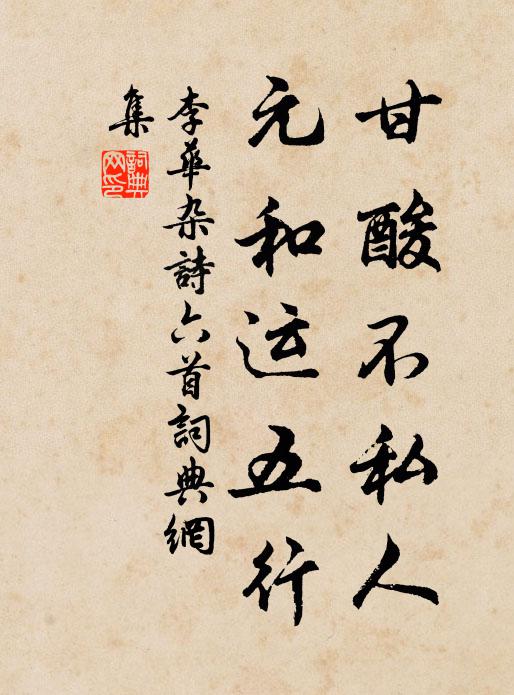 甘酸不私人
元和运五行
李華杂詩六首詞典網
集
詞典
网印